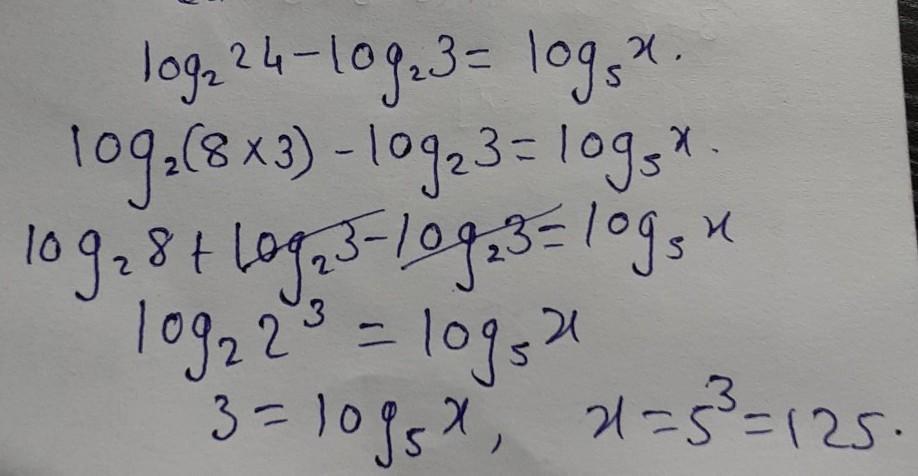 log₂24 - log₂3 = log₅x.
log₂(8×3) - log₂3 = log₅x.
log₂8 + log₂3 - log₂3 = log₅x
log₂2³ = log₅x
3 = log₅x, x = 5³ = 125.